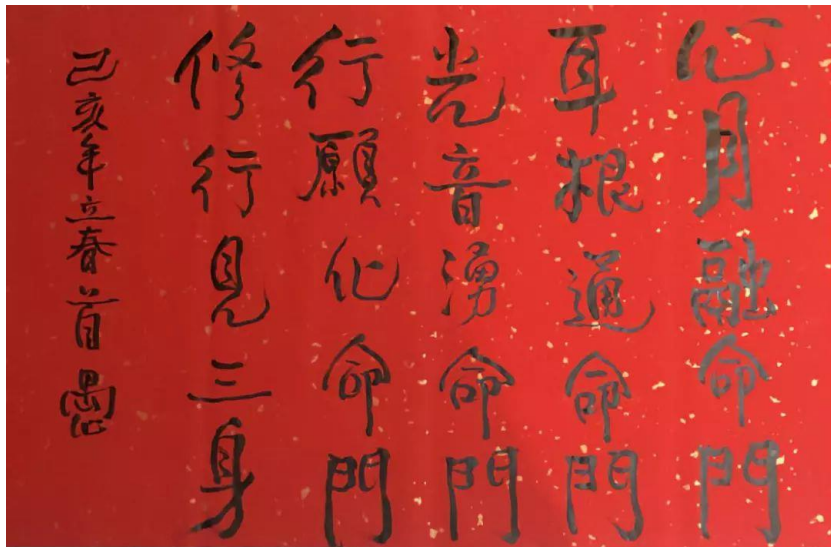 心月融命門
耳根通命門
光音湧命門
行願化命門
修行見三身
己亥年立春首愚